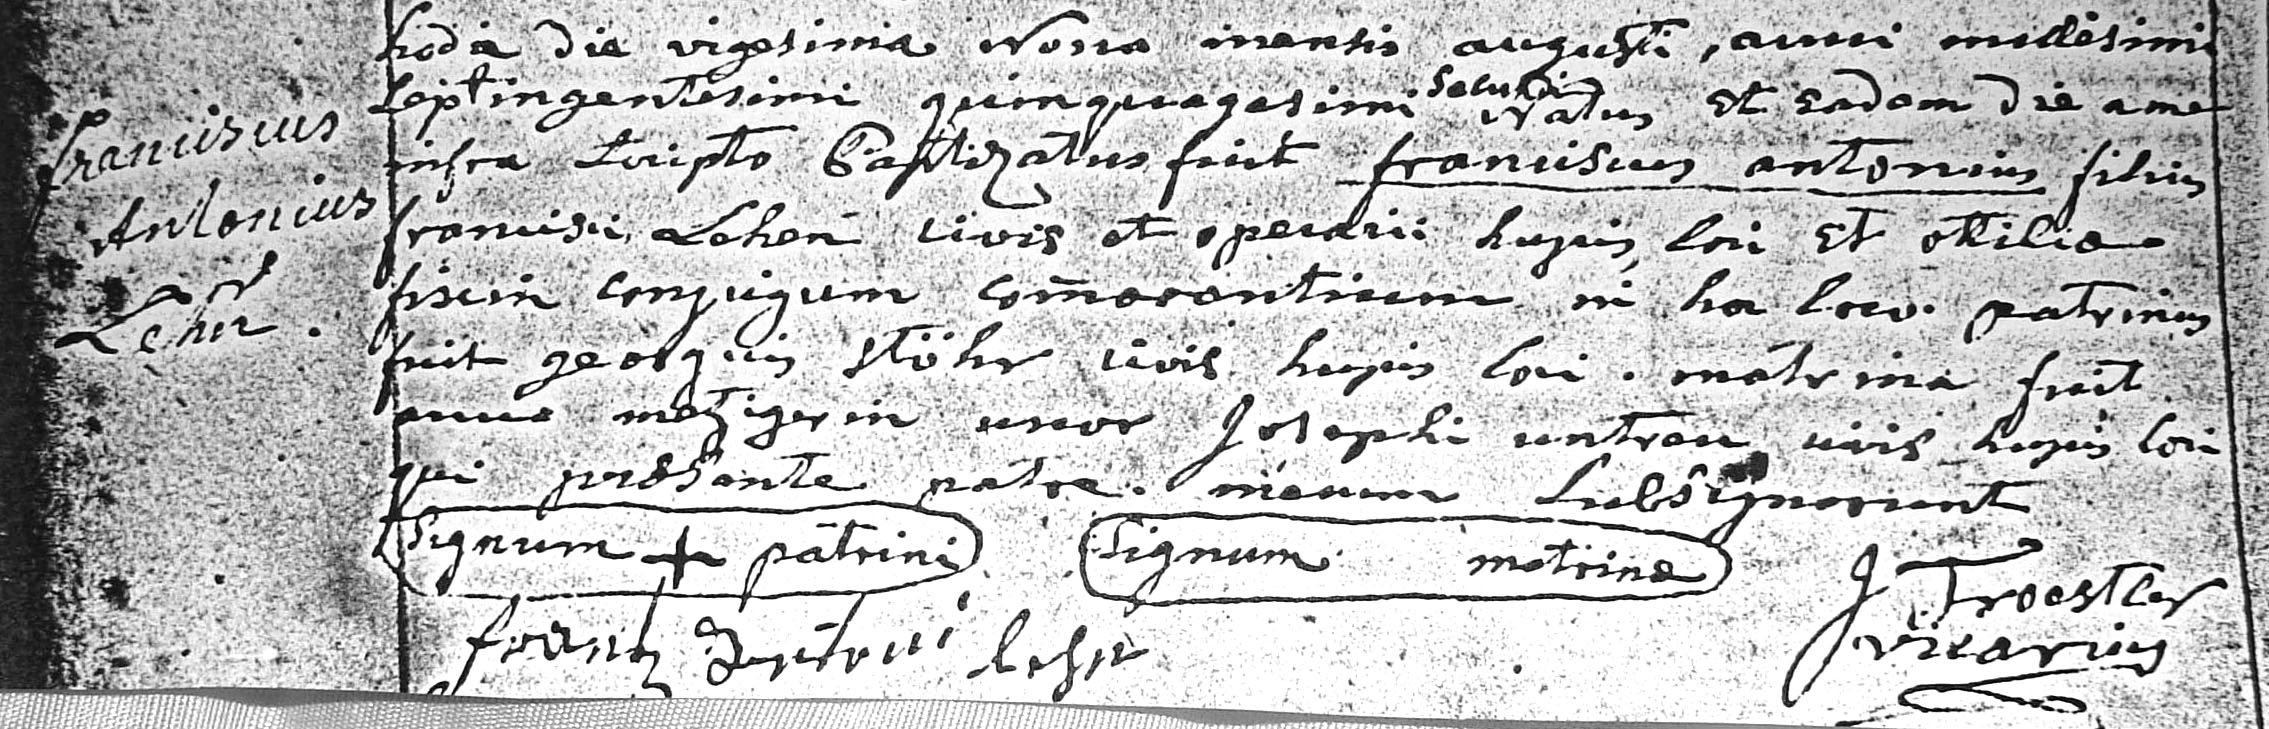 franciscus
Antonius
Lehn .
hodie die vigesima Nona mensis augusti, anni millesimi
septingentesimi quinquagesimi secundi Natus Et eadem die a me
infra scripto Baptizatus fuit franciscus antonius filius
francisci Lehen civis et operarii hujus loci Et ottiliae
fixin conjugum com̄orantium in hoc loco. patrinus
fuit georgius stöhr civis hujus loci. matrina fuit
anna mezigerin uxor Josephi untrau civis hujus loci
qui presente patre. mecum subsignarunt
Signum + patrini Signum matrinae
frantz Antoni lehn
J Troestler
vicarius